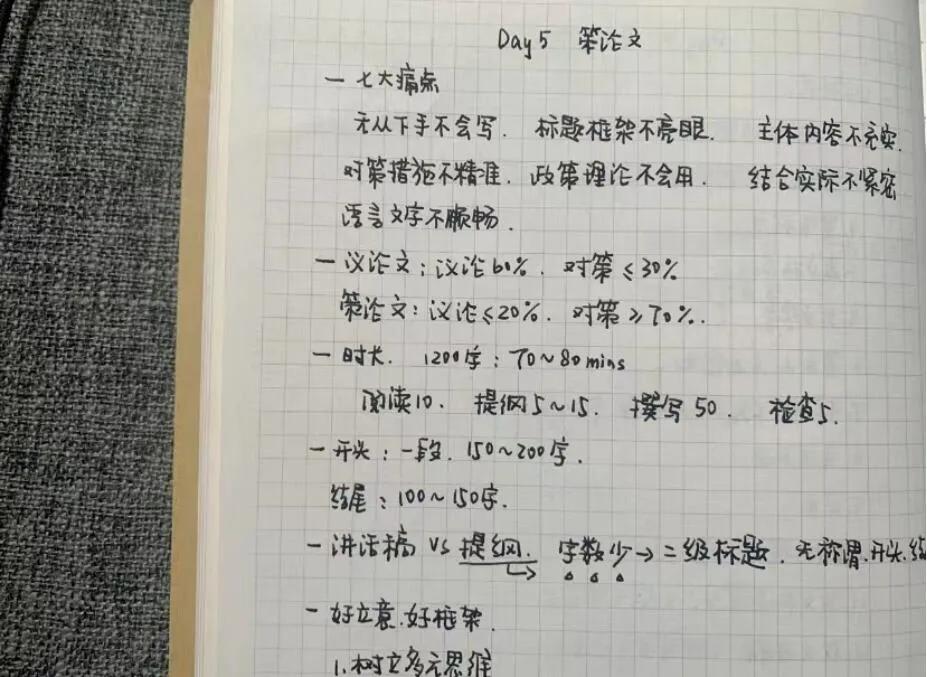 Day 5 策论文
一 七大痛点
无从下手不会写. 标题框架不亮眼. 主体内容不充实.
对策措施不精准. 政策理论不会用. 结合实际不紧密
语言文字不顺畅.
一 议论文: 议论60%. 对策≤30%
策论文: 议论≤20%. 对策≥70%.
一 时长. 1200字: 70~80mins
阅读10. 提纲5~15. 撰写50. 检查5.
一 开头: 一段. 150~200字.
结尾: 100~150字.
一 讲话稿 VS 提纲. 字数少→二级标题. 无称谓.开头.结
一 好立意.好框架.
1. 树立多元思维